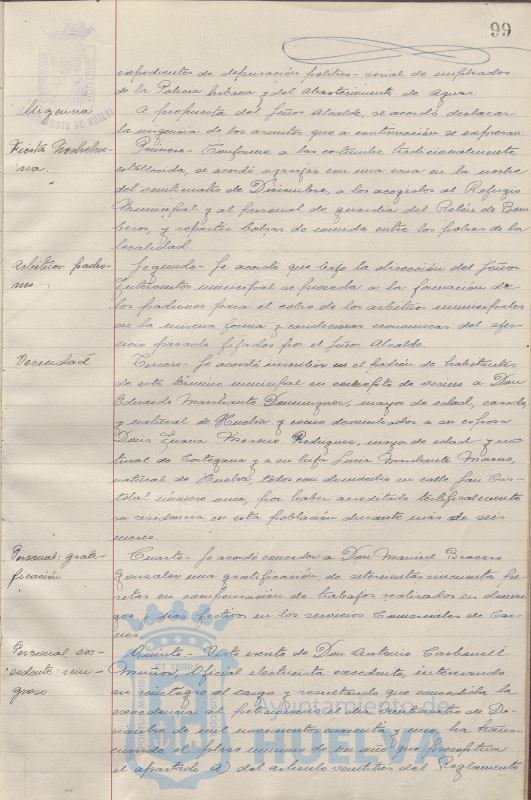 99
expedientes de depuración político-social de empleados
de la Policía Urbana y del Abastecimiento de Aguas.
Urgencia
A propuesta del Señor Alcalde, se acordó declarar
la urgencia de los asuntos que a continuación se expresan.
Fiesta Nochebue-
na.
Primero.- Conforme a las costumbres tradicionalmente
establecida, se acordó agasajar con una cena en la noche
del veinticuatro de Diciembre, a los acogidos al Refugio
Municipal y al personal de guardia del Retén de Bom-
beros, y repartir bolsas de comida entre los pobres de la
localidad.
Arbitrios: padro-
nes.
Segundo.- Se acordó que bajo la dirección del Señor
Interventor municipal se proceda a la formación de
los padrones para el cobro de los arbitrios municipales
en la misma forma y condiciones económicas del ejer-
cicio pasado fijados por el Señor Alcalde.
Vecindad
Tercero.- Se acordó inscribir en el padrón de habitantes
de este término municipal en concepto de vecino a Don
Eduardo Marchante Domínguez, mayor de edad, casado
y natural de Huelva y como domiciliados a su esposa
Doña Juana Moreno Rodríguez, mayor de edad y na-
tural de Cortegana y a su hija Luisa Marchante Moreno,
natural de Huelva, todos con domicilio en calle San Cris-
tóbal número once, por haber acreditado testificalmente
su residencia en esta población durante más de seis
meses.
Personal: grati-
ficación
Cuarto.- Se acordó conceder a Don Manuel Bracero
González una gratificación de setecientas cincuenta pe-
setas en compensación de trabajos realizados en domin-
gos y días festivos en los servicios Comerciales de Car-
nes.
Personal ex-
cedente: rein-
greso
Quinto.- Visto escrito de Don Antonio Carbonell
Muñoz, Oficial electricista excedente, interesando
su reintegro al cargo y resultando que concedida la
excedencia al peticionario el día veinticuatro de Di-
ciembre de mil novecientos cuarenta y uno, ha trans-
currido el plazo mínimo de un año que preceptúa
el apartado A) del artículo veintitrés del Reglamento
Ayuntamiento de
HUELVA